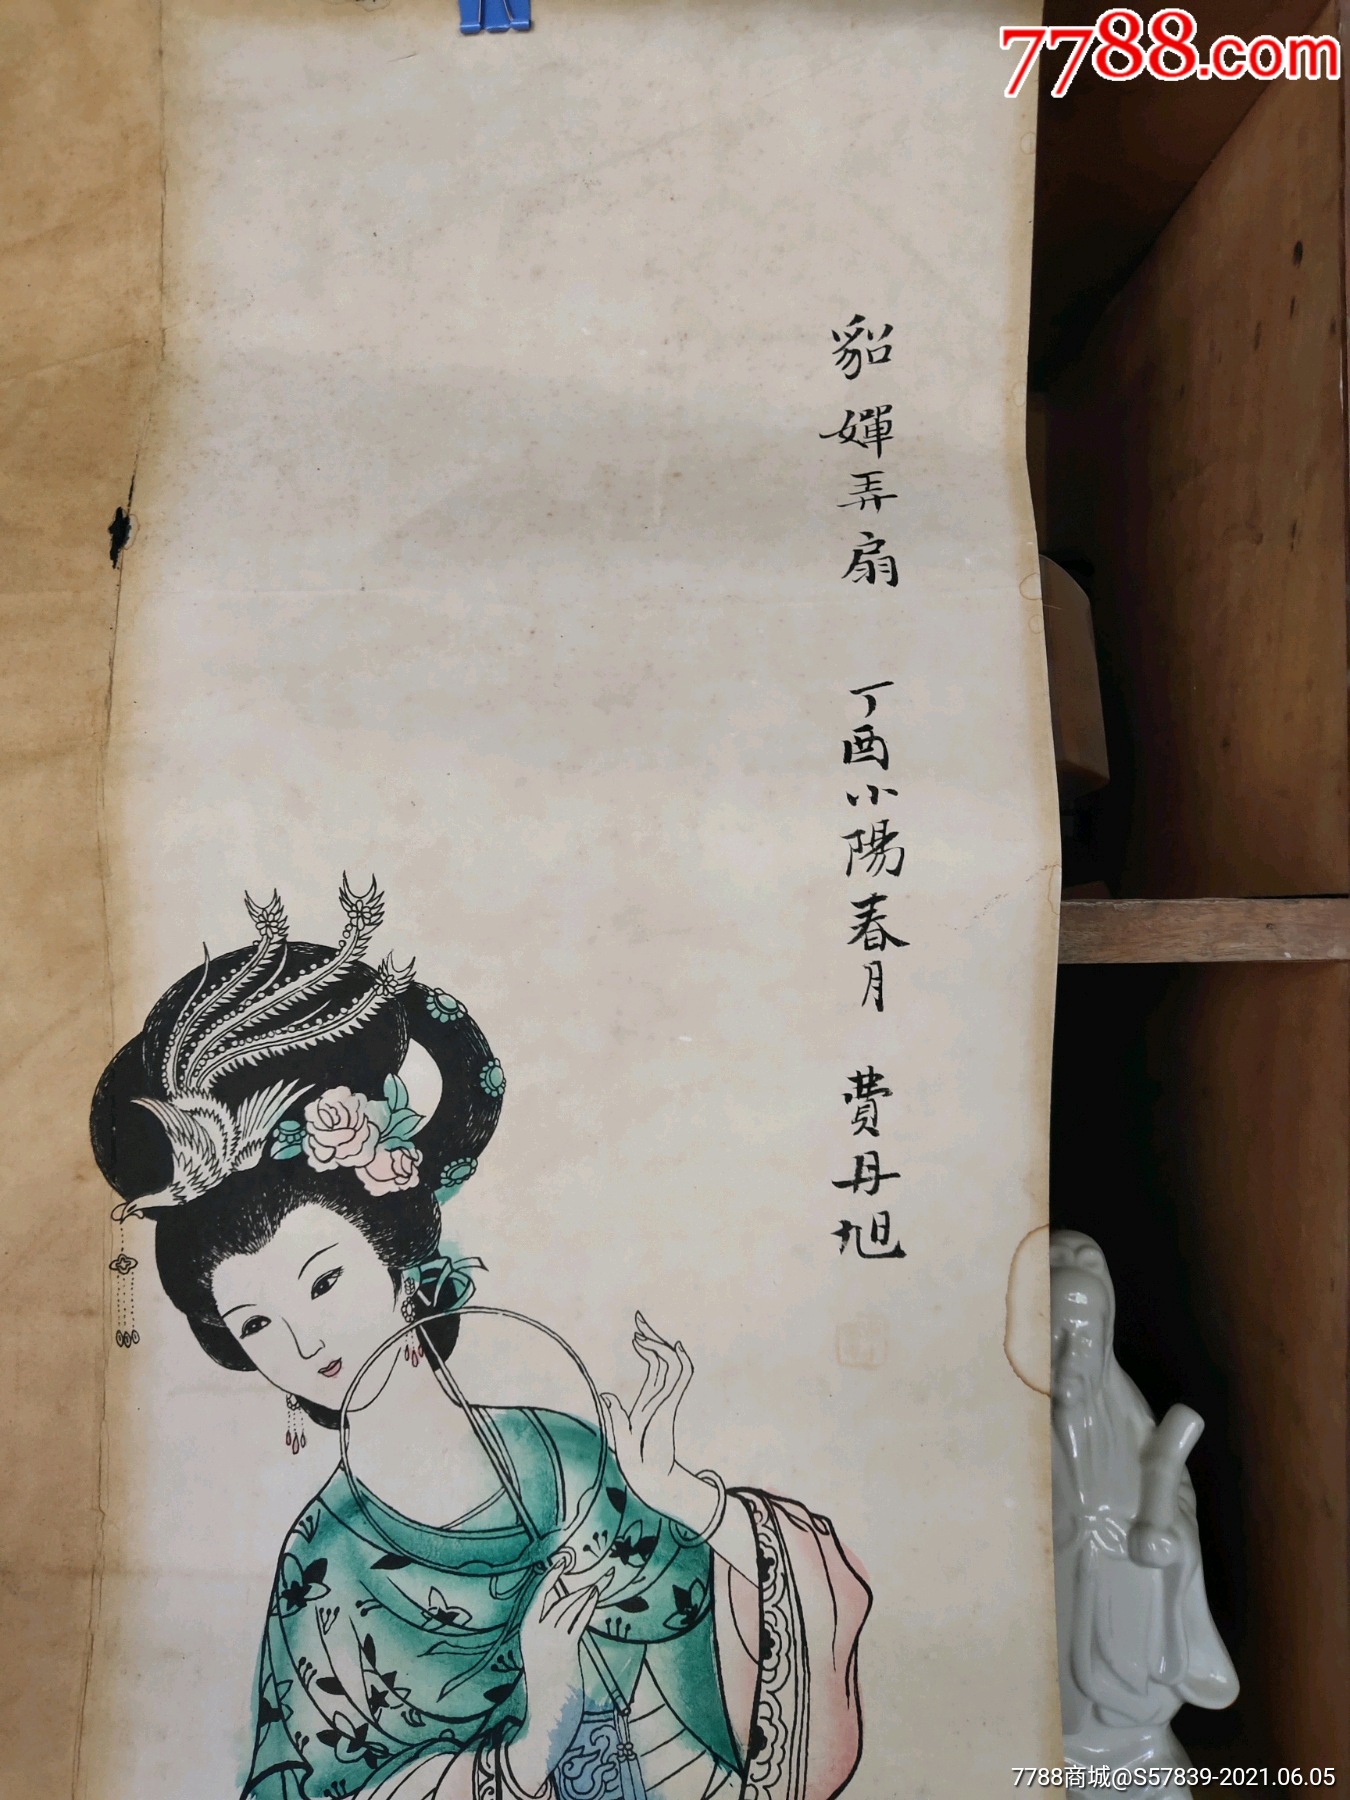 7788.com
貂嬋弄扇 丁酉小陽春月 費丹旭
7788商城@S57839-2021.06.05